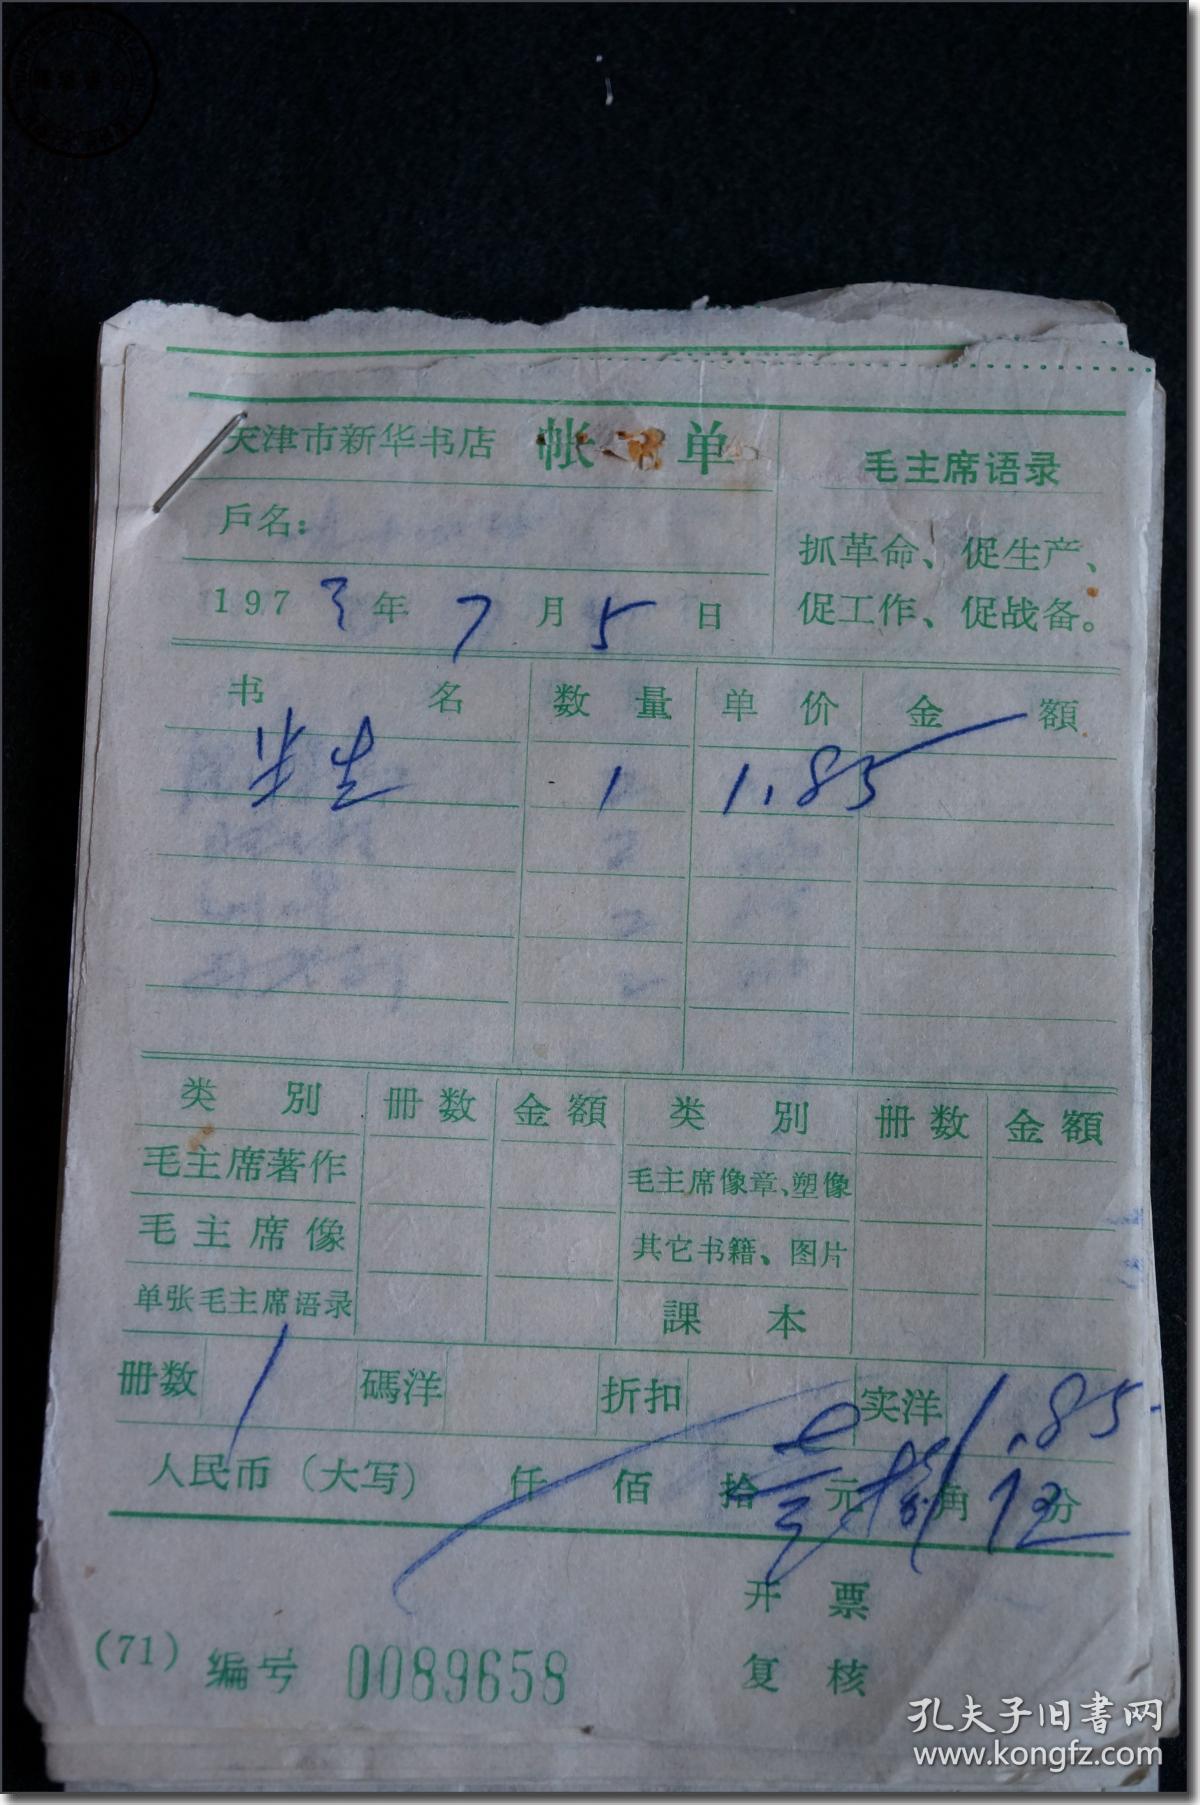 天津市新华书店 帐 单
毛主席语录
抓革命、促生产、
促工作、促战备。
戶名：
1973年7月5日
书 名 数 量 单 价 金 額
1 1.85
类 別 册数 金額 类 別 册数 金額
毛主席著作 毛主席像章、塑像
毛主席像 其它书籍、图片
单张毛主席语录 課 本
册数 1 碼洋 折扣 实洋 1.85
人民币（大写） 仟 佰 拾 元 角 分
开 票
(71) 编号 0089658
复 核
孔夫子旧書网
www.kongfz.com